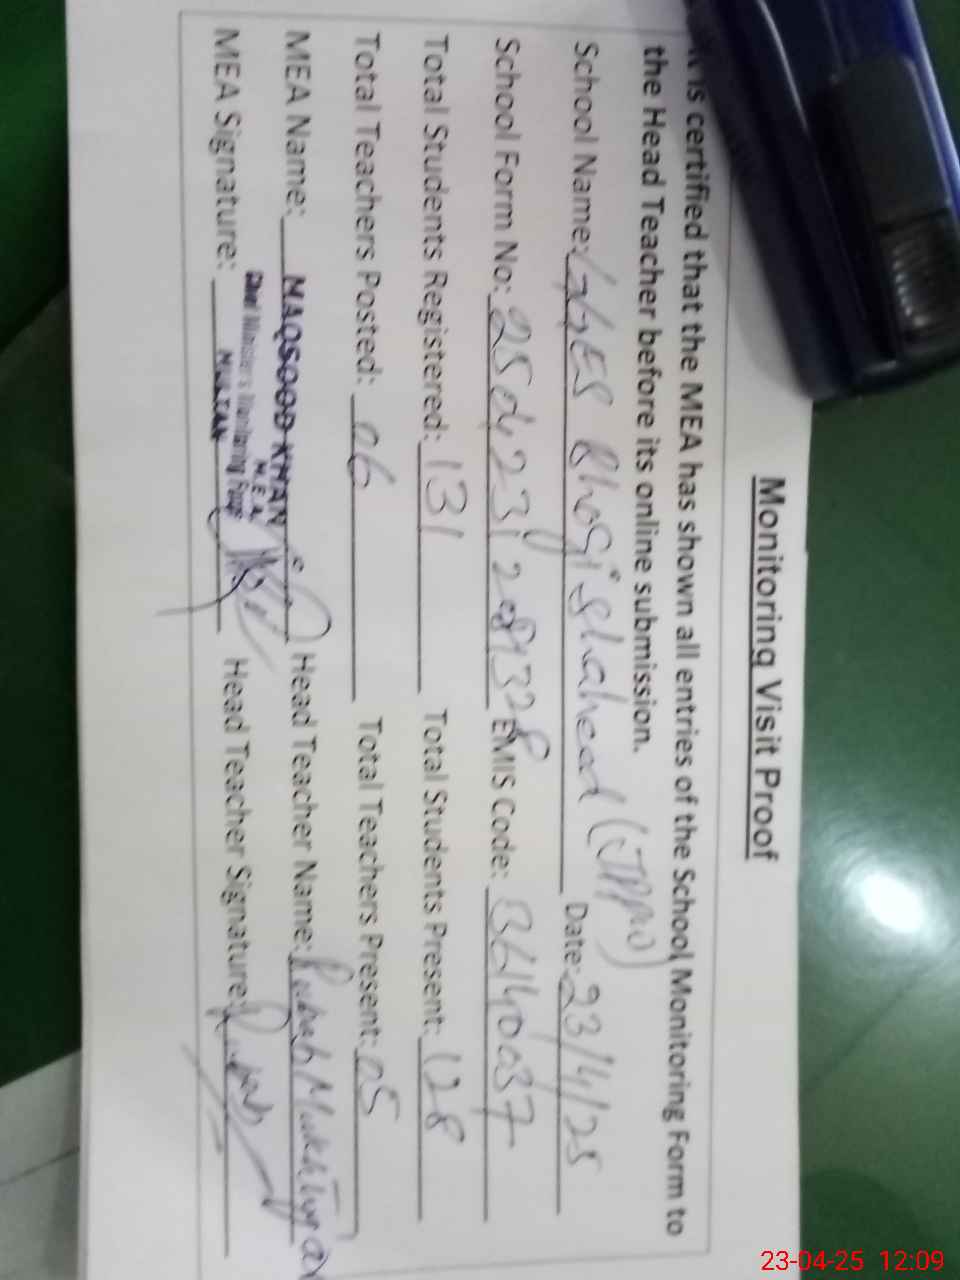 Monitoring Visit Proof
It is certified that the MEA has shown all entries of the School Monitoring Form to
the Head Teacher before its online submission.
School Name: GGES (JPPW) Date: 23/4/25
School Form No: EMIS Code: 36140037
Total Students Registered: 131 Total Students Present: 128
Total Teachers Posted: 06 Total Teachers Present: 05
MEA Name: MAQSOOD KHAN Head Teacher Name: Rubab
M.E.A
MEA Signature: Head Teacher Signature: Rubab
Chief Minister's Monitoring Force
MULTAN
23-04-25 12:09